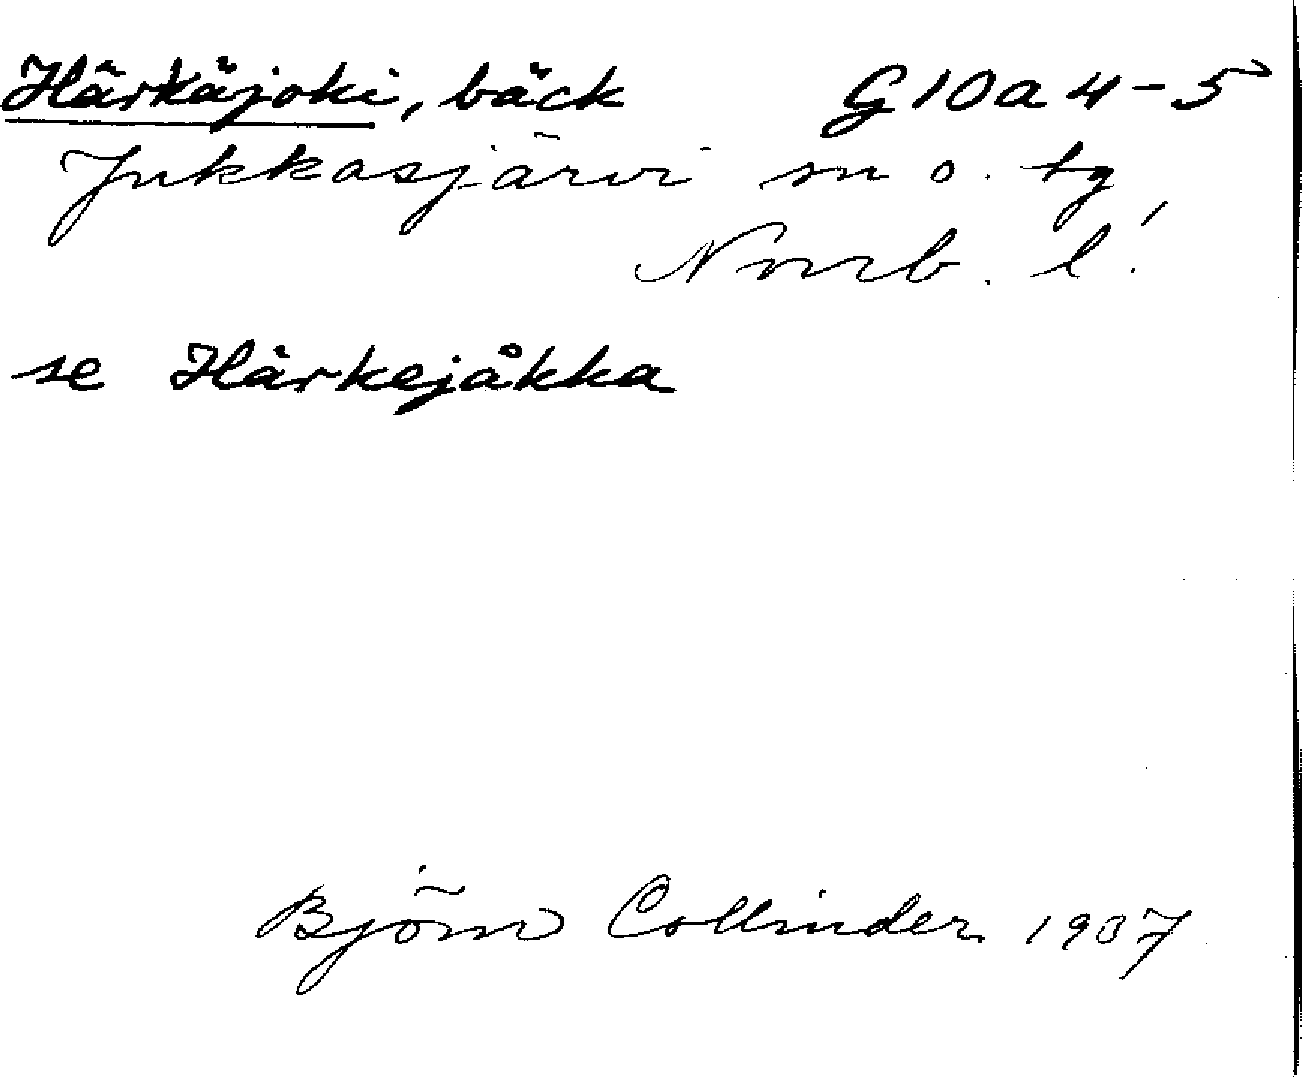 Härkäjoki, bäck G10a4-5
Jukkasjärvi sn o. tg
Norrb. l.
se Härkejåkka
Björn Collinder 1937